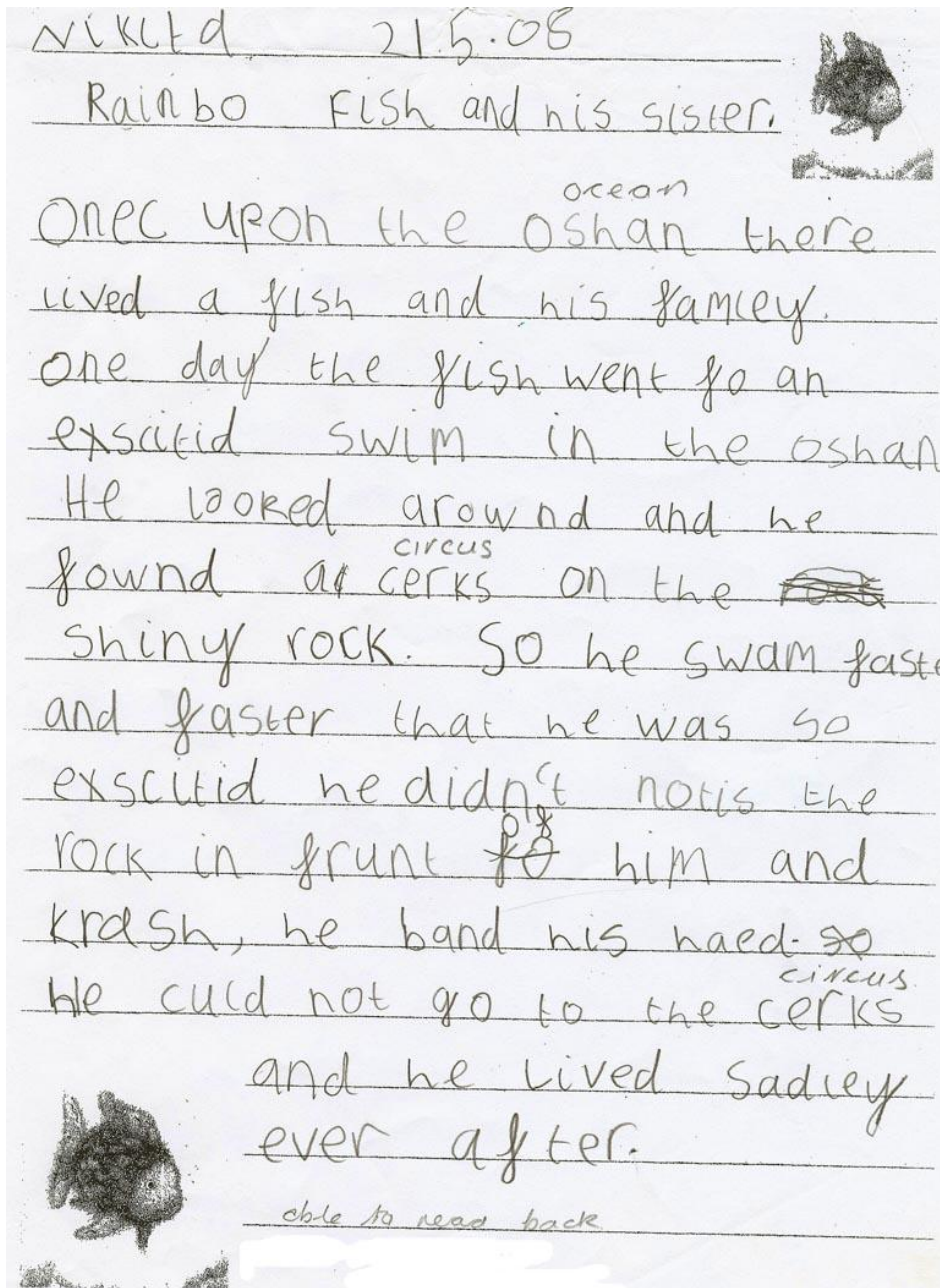 Nikita 21.5.08
Rainbo Fish and his sister.
ocean
Onec upon the oshan there
lived a fish and his famley.
one day the fish went fo an
exscitid swim in the oshan
He looked arownd and he
circus
fownd a cerks on the
shiny rock. So he swam faste
and faster that he was so
exscitid he didn't notis the
rock in frunt of him and
krash, he band his haed. so
He culd not go to the cerks
circus
and he lived sadley
ever after.
able to read back